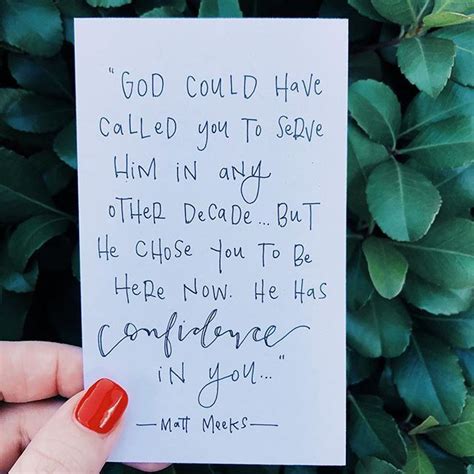 "GOD COULD HAVE
CALLED YOU TO SERVE
HIM IN ANY
OTHER DECADE... BUT
HE CHOSE YOU TO BE
HERE NOW. HE HAS
confidence
IN YOU..."
—MATT MEEKS—